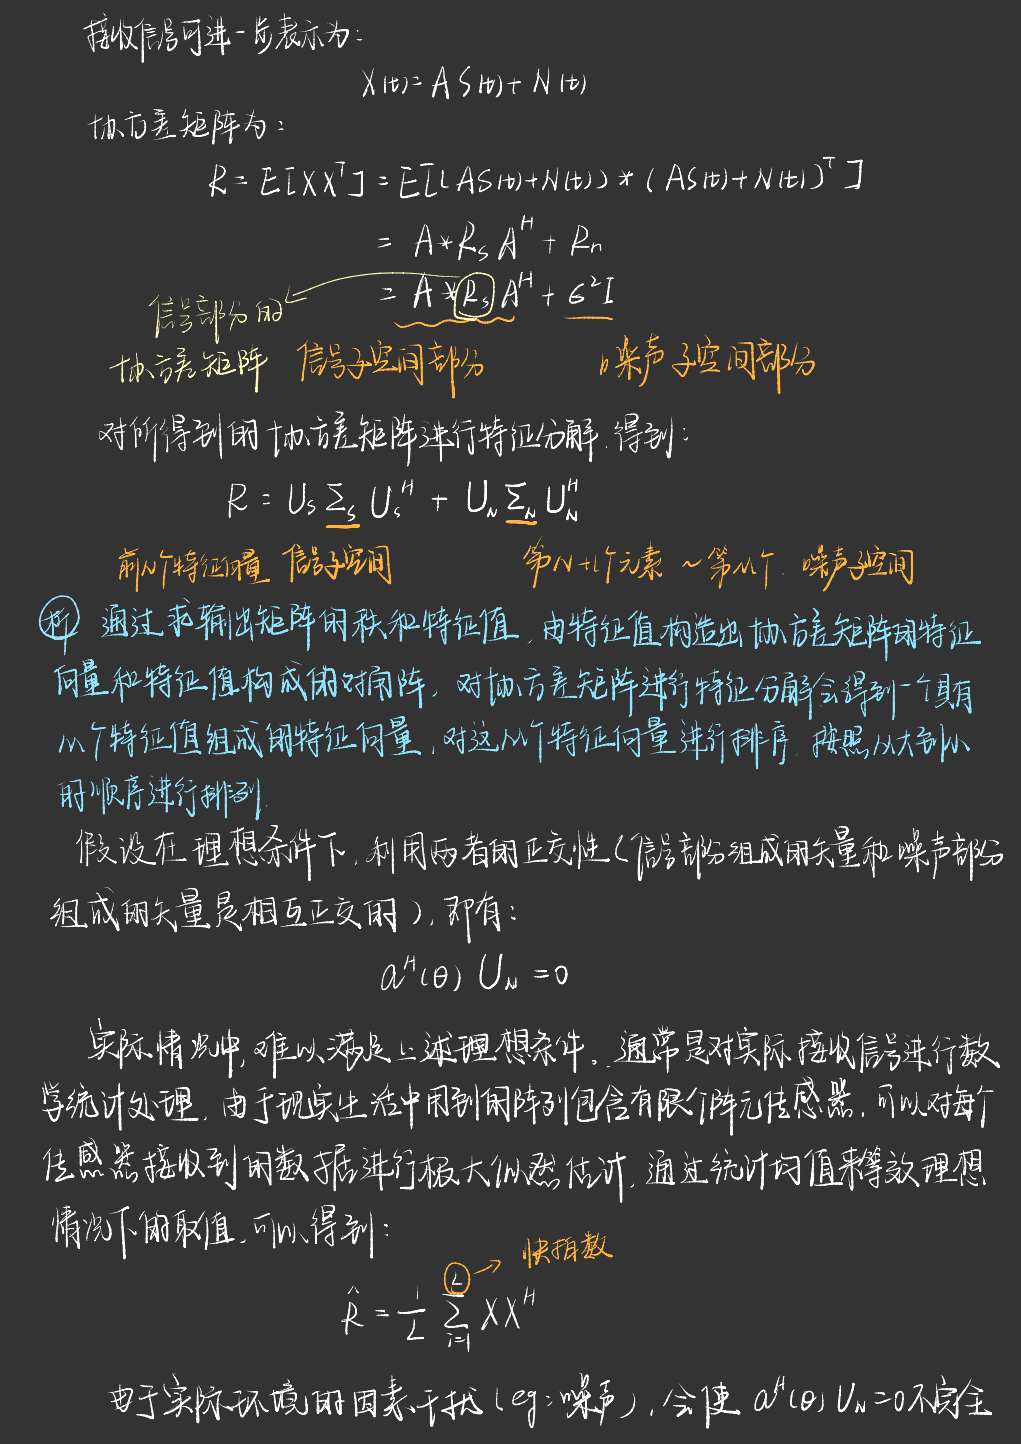 接收信号可进一步表示为:
X(t)=AS(t)+N(t)
协方差矩阵为:
R=E[XX^T]=E[(AS(t)+N(t))*(AS(t)+N(t))^T]
= A*R_s A^H + R_n
= A*R_s A^H + σ²I
信号部分的
协方差矩阵 信号子空间部分 噪声子空间部分
对所得到的协方差矩阵进行特征分解,得到:
R = U_s Σ_s U_s^H + U_N Σ_N U_N^H
前N个特征向量 信号子空间 第N+1个元素~第M个 噪声子空间
析 通过求输出矩阵的秩和特征值,由特征值构造出协方差矩阵的特征
向量和特征值构成的对角阵,对协方差矩阵进行特征分解会得到一个具有
M个特征值组成的特征向量,对这M个特征向量进行排序,按照从大到小
的顺序进行排列.
假设在理想条件下,利用两者的正交性(信号部分组成的矢量和噪声部分
组成的矢量是相互正交的),即有:
a^H(θ) U_N =0
实际情况中,难以满足上述理想条件,通常是对实际接收信号进行数
学统计处理,由于现实生活中用到的阵列包含有限个阵元传感器,可以对每个
传感器接收到的数据进行极大似然估计,通过统计均值来等效理想
情况下的取值,可以得到:
快拍数
R̂ = 1/L Σ_{i=1}^{L} XX^H
由于实际环境的因素干扰(eg:噪声),会使 a^H(θ)U_N=0不完全